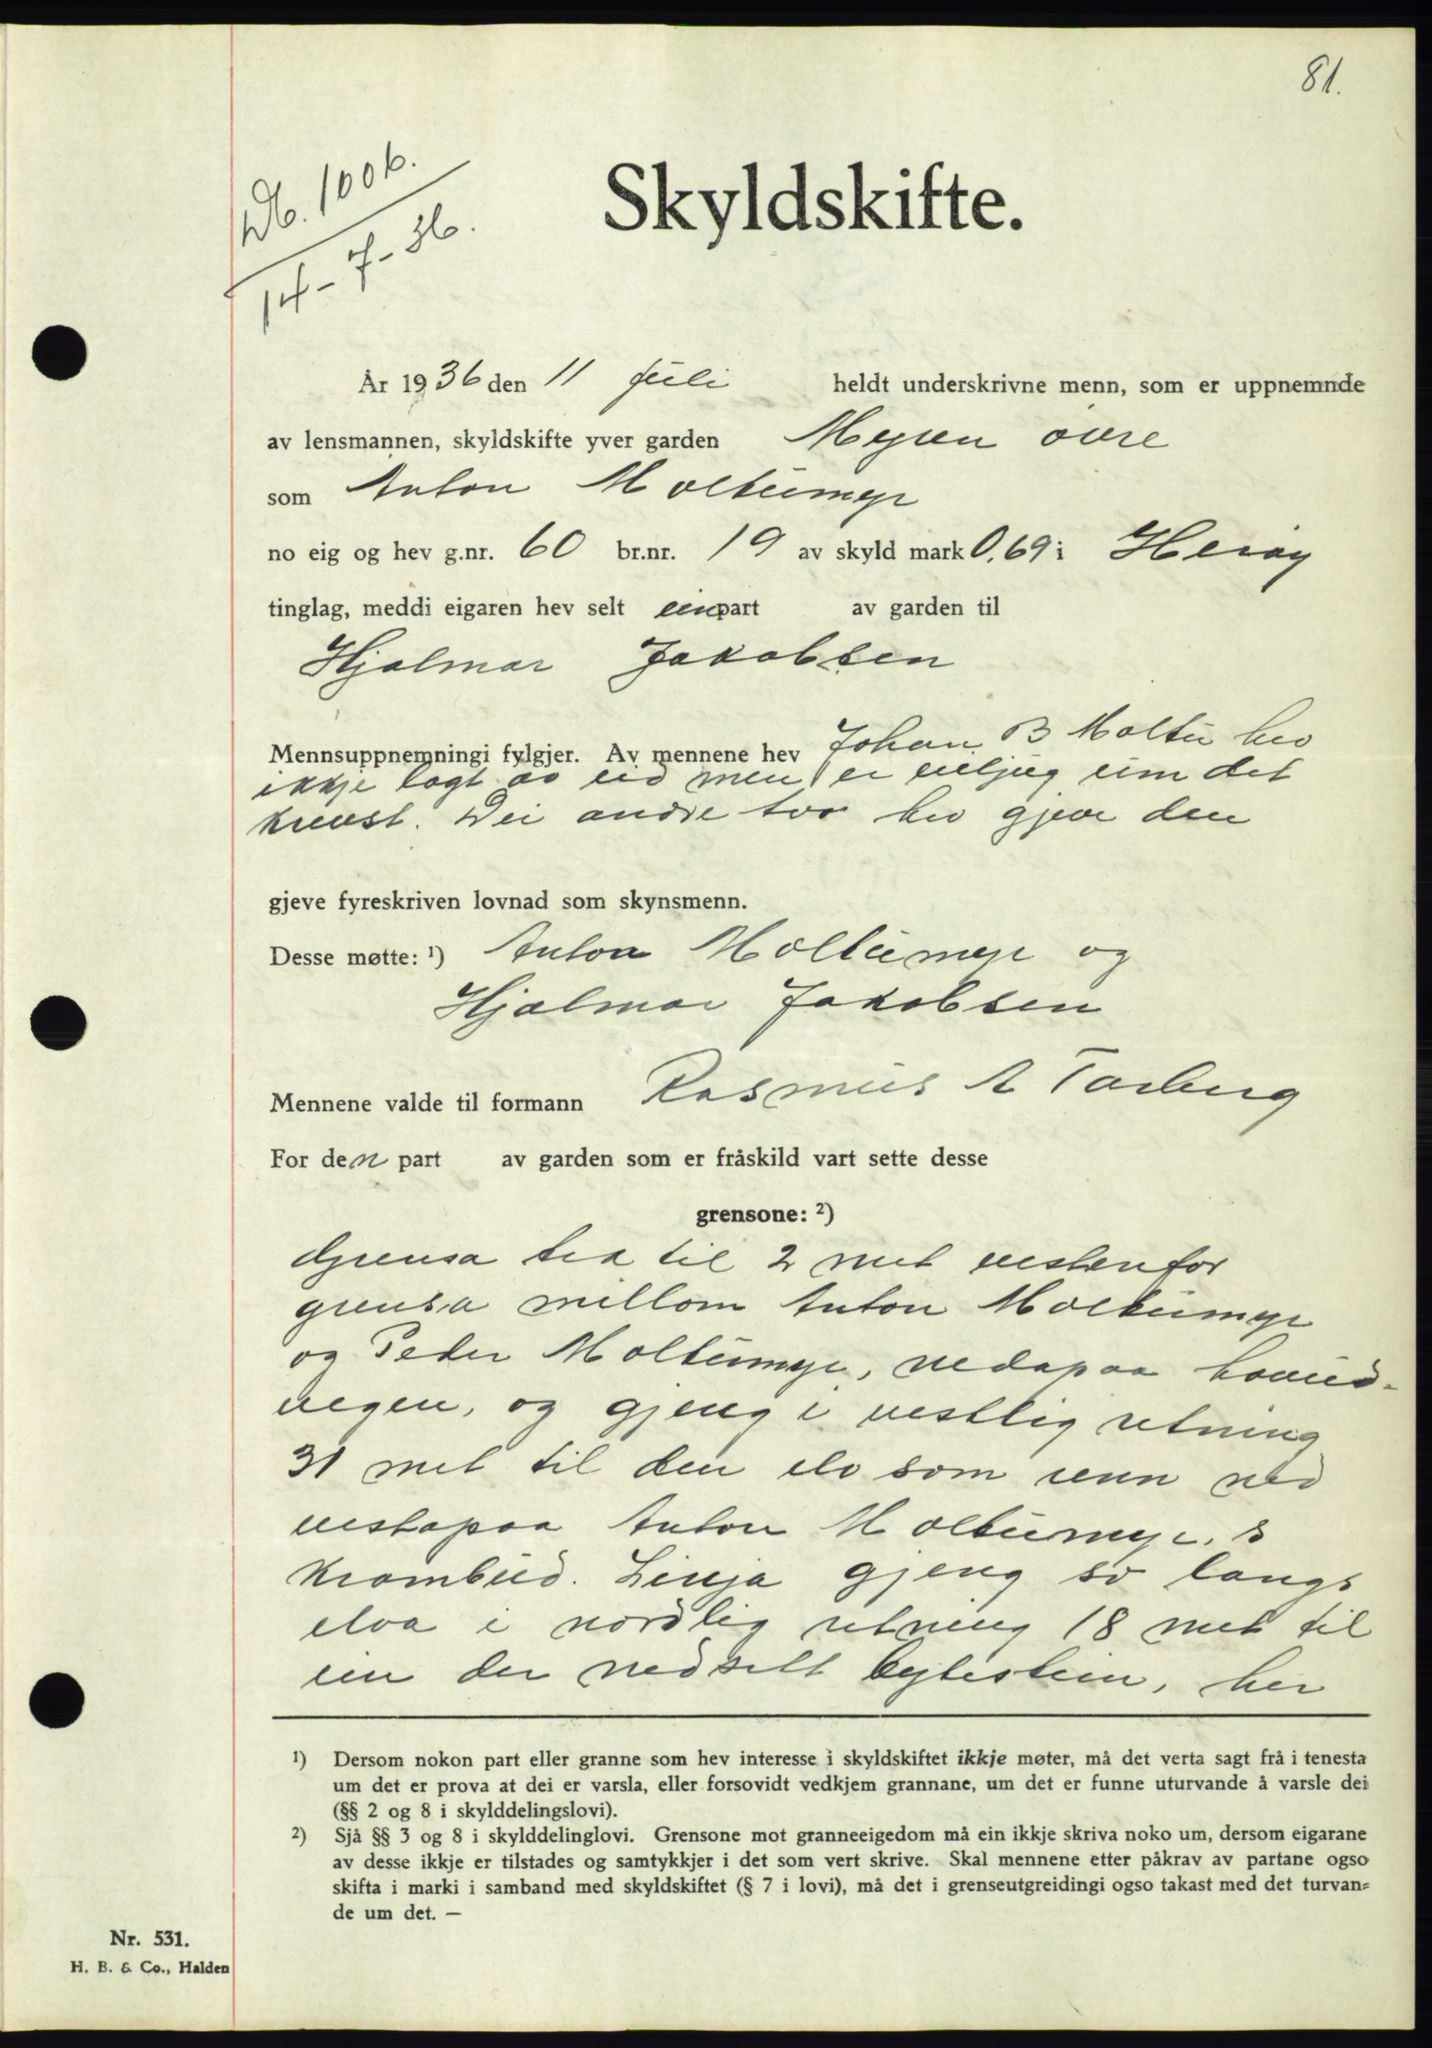 81.
Db. 1006.
14-7-36.
Skyldskifte.
År 1936 den 11 juli heldt underskrivne menn, som er uppnemnde
av lensmannen, skyldskifte yver garden Myren øvre
som Anton Moltumyr
no eig og hev g.nr. 60 br.nr. 19 av skyld mark 0,69 i Herøy
tinglag, meddi eigaren hev selt ein part av garden til
Hjalmar Jakobsen
Mennsuppnemningi fylgjer. Av mennene hev Johan B Moltu hev
ikkje lagt av eid men er viljug um det
krevst. Dei andre tvo hev gjeve den
gjeve fyreskriven lovnad som skynsmenn.
Desse møtte: ¹) Anton Moltumyr og
Hjalmar Jakobsen
Mennene valde til formann Rasmus A Tarberg
For den part av garden som er fråskild vart sette desse
grensone: ²)
Grensa tek til 2 met vestenfor
grensa millom Anton Moltumyr
og Peder Moltumyr, nedapaa hovud-
vegen, og gjeng i vestlig retning
31 met til den elv som renn ned
vestapaa Anton Moltumyr, s
krambud. Linja gjeng so langs
elva i nordlig retning 18 met til
ein der nedsett bytestein, her
¹) Dersom nokon part eller granne som hev interesse i skyldskiftet ikkje møter, må det verta sagt frå i tenesta
um det er prova at dei er varsla, eller forsovidt vedkjem grannane, um det er funne uturvande å varsle dei
(§§ 2 og 8 i skylddelingslovi).
²) Sjå §§ 3 og 8 i skylddelinglovi. Grensone mot granneeigedom må ein ikkje skriva noko um, dersom eigarane
av desse ikkje er tilstades og samtykkjer i det som vert skrive. Skal mennene etter påkrav av partane ogso
skifta i marki i samband med skyldskiftet (§ 7 i lovi), må det i grenseutgreidingi ogso takast med det turvan-
de um det. —
Nr. 531.
H. B. & Co., Halden